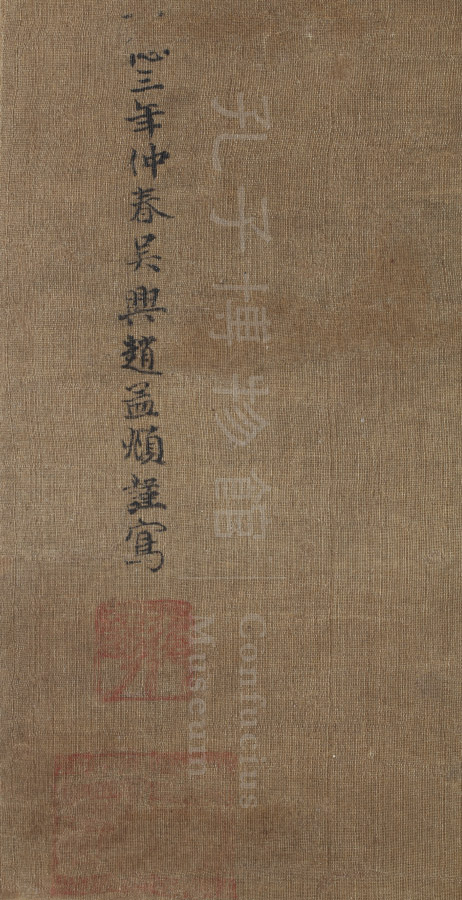 三年仲春吳興趙益煩謹寫
孔子博物館
Confucius
Museum